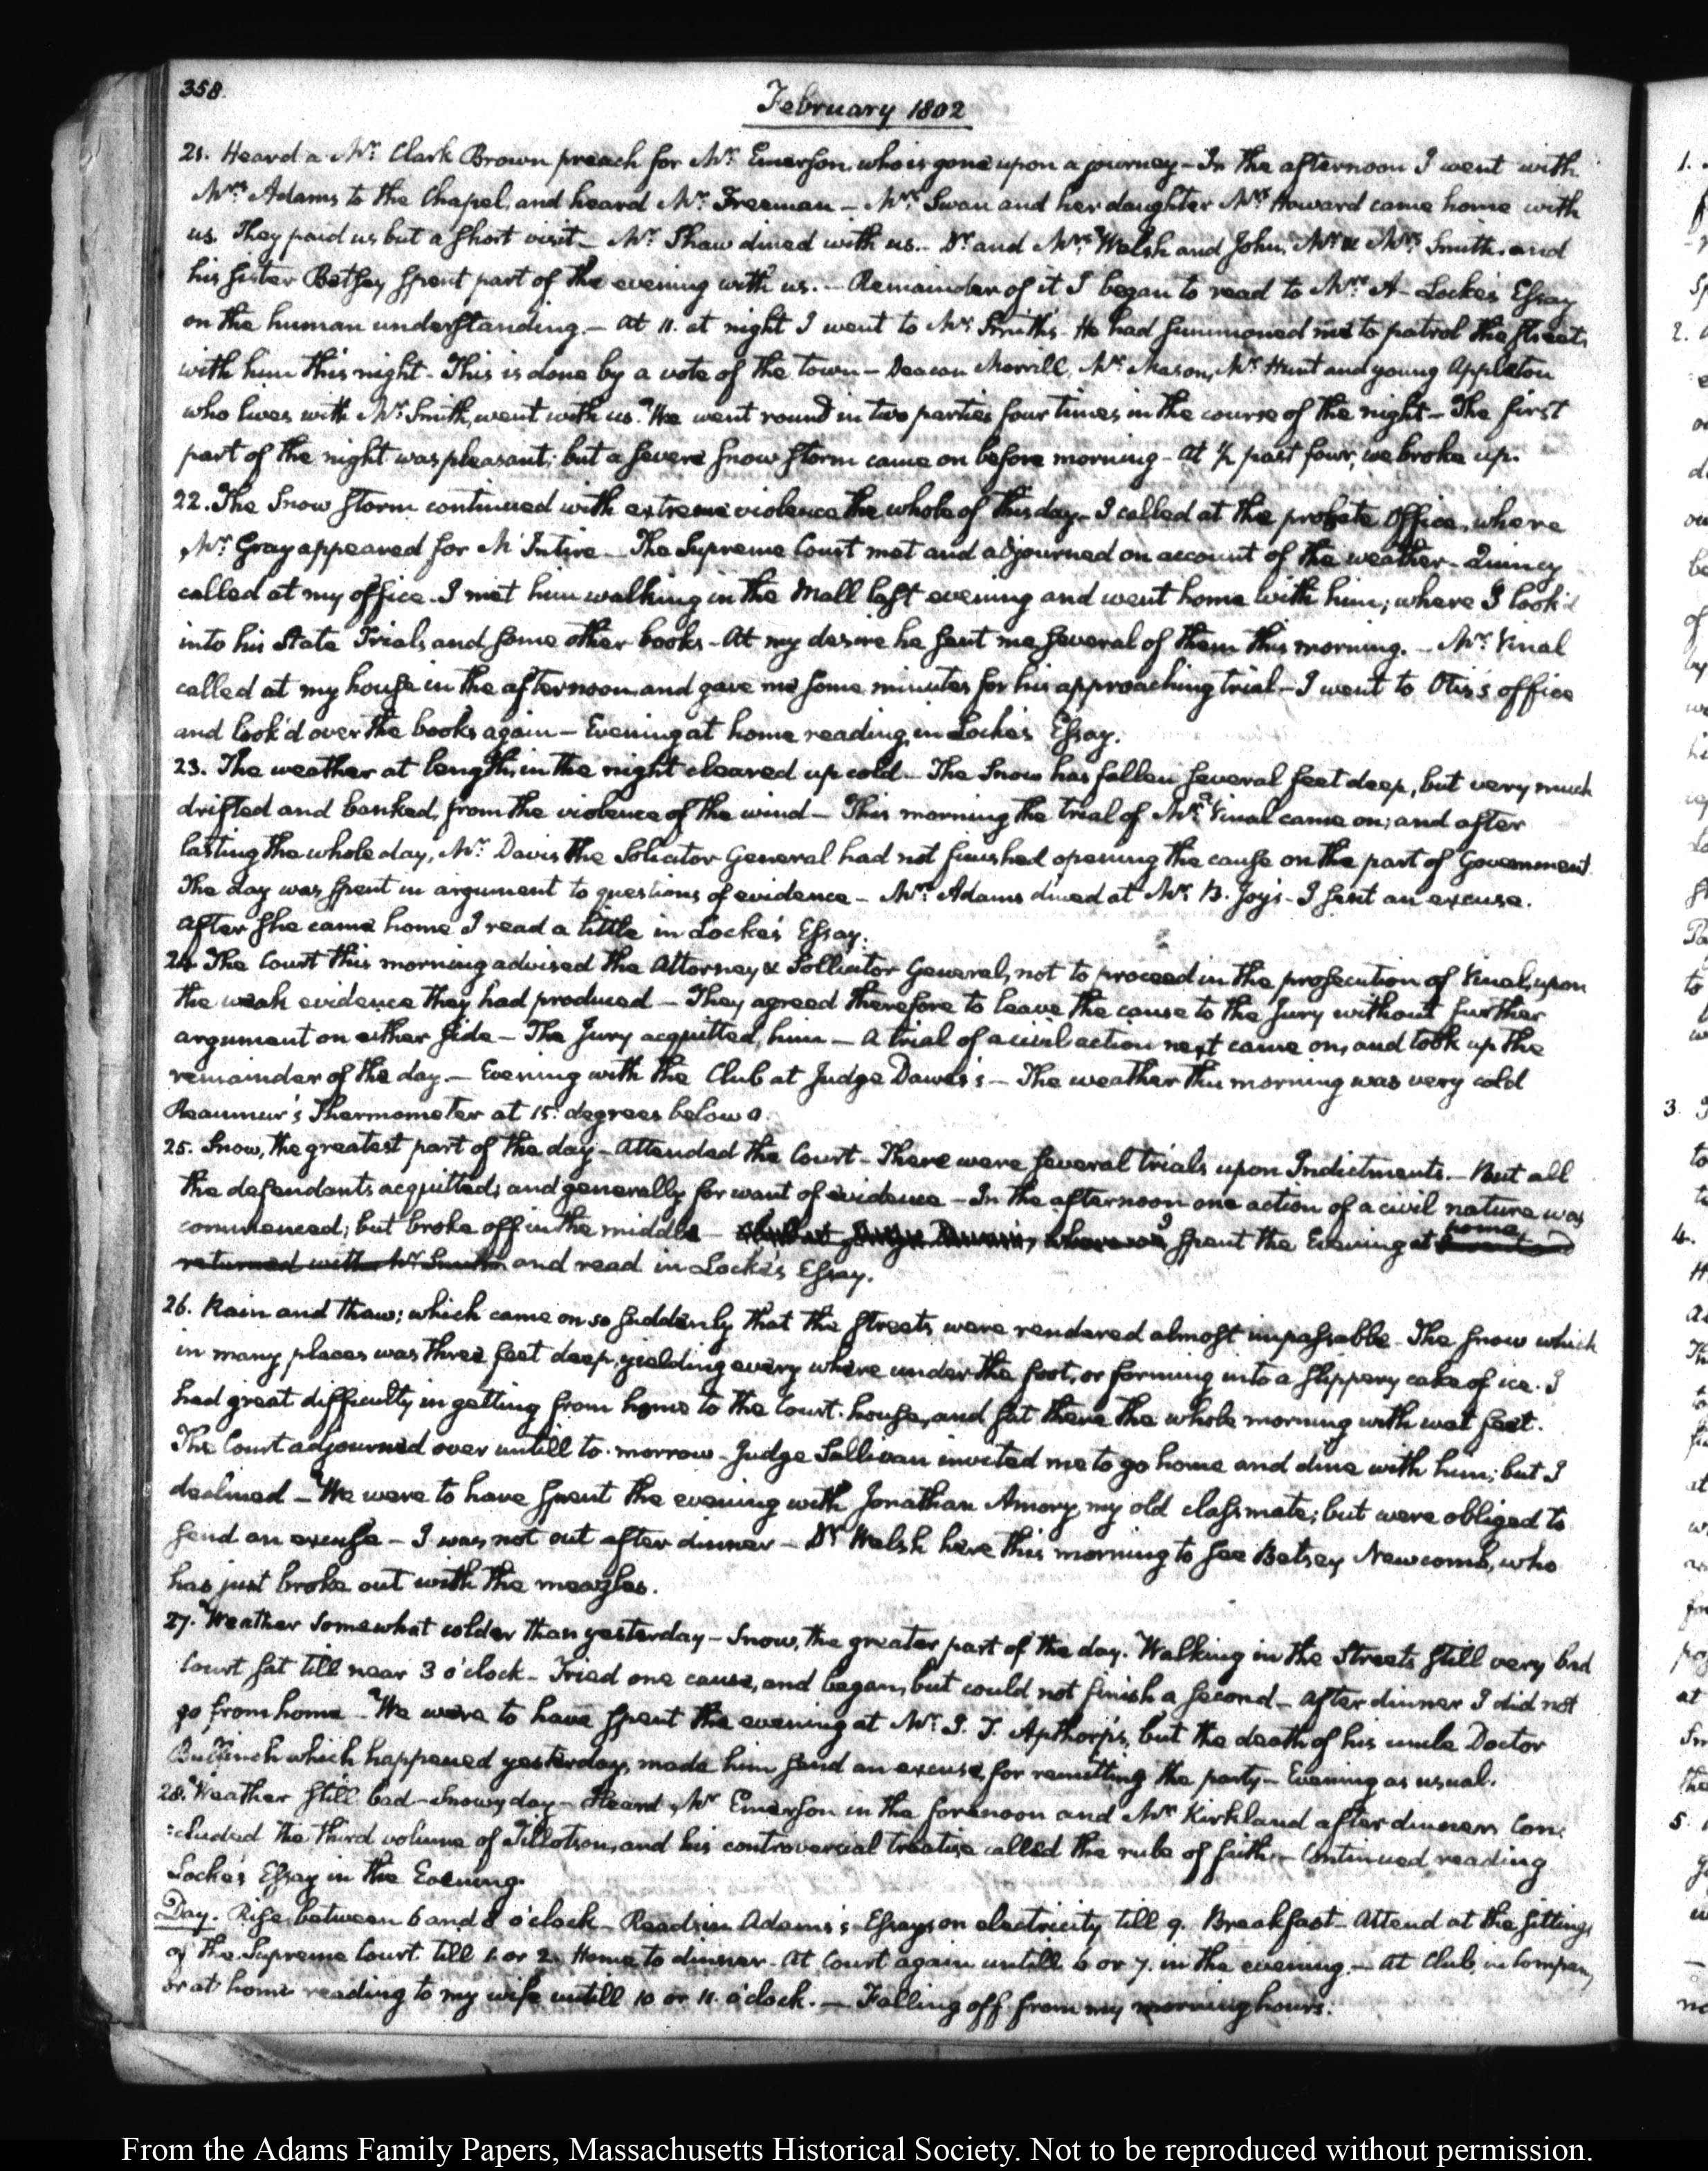 358.
February 1802
21. Heard a Mr. Clark Brown preach for Mr. Emerson, who is gone upon a journey – In the afternoon I went with
Mrs. Adams to the Chapel, and heard Mr. Freeman – Mrs. Swan and her daughter Mrs. Howard came home with
us. They paid us but a short visit – Mr. Shaw dined with us. – Dr. and Mrs. Welsh and John, Mr. & Mrs. Smith and
his sister Betsey spent part of the evening with us. – Remainder of it I began to read to Mrs. A – Locke's Essay
on the human understanding. – At 11. at night I went to Mr. Smith's. He had summoned me to patrol the streets
with him this night – This is done by a vote of the town – Deacon Morrill, Mr. Mason, Mr. Hunt and young Appleton
who lives with Mr. Smith, went with us. We went round in two parties four times in the course of the night – The first
part of the night was pleasant; but a severe snow storm came on before morning – At ½ past four, we broke up.
22. The Snow storm continued with extreme violence the whole of this day – I called at the probate Office, where
Mr. Gray appeared for M'Intire – The Supreme Court met and adjourned on account of the weather – Quincy
called at my office. I met him walking in the Mall last evening and went home with him; where I look'd
into his State Trials and some other books – At my desire he sent me several of them this morning. – Mr. Vinal
called at my house in the afternoon and gave me some minutes for his approaching trial – I went to Otis's office
and look'd over the books again – Evening at home reading in Locke's Essay.
23. The weather at length, in the night cleared up cold – The Snow has fallen several feet deep, but very much
drifted and banked, from the violence of the wind – This morning the trial of Mr. Vinal came on; and after
lasting the whole day, Mr. Davis the Solicitor General had not finished opening the cause on the part of Government.
The day was spent in argument to questions of evidence – Mrs. Adams dined at Mr. B. Joy's – I sent an excuse.
After she came home I read a little in Locke's Essay.
24. The Court this morning advised the Attorney & Sollicitor General, not to proceed in the prosecution of Vinal, upon
the weak evidence they had produced – They agreed therefore to leave the cause to the Jury without further
argument on either side – The Jury acquitted, him – A trial of a civil action next came on, and took up the
remainder of the day. – Evening with the Club at Judge Dawes's – The weather this morning was very cold
Reaumur's Thermometer at 15. degrees below 0.
25. Snow, the greatest part of the day – Attended the Court – There were several trials upon Indictments. – But all
the defendants acquitted; and generally for want of evidence – In the afternoon one action of a civil nature was
commenced; but broke off in the middle – I spent the Evening at home
returned with Mr. Smith and read in Locke's Essay.
26. Rain and thaw; which came on so suddenly that the streets were rendered almost impassable – The snow which
in many places was three feet deep, yielding every where under the foot, or forming into a slippery cake of ice. I
had great difficulty in getting from home to the Court-house, and sat there the whole morning with wet feet.
The Court adjourned over untill to-morrow – Judge Sullivan invited me to go home and dine with him; but I
declined – We were to have spent the evening with Jonathan Amory, my old classmate; but were obliged to
send an excuse – I was not out after dinner – Dr. Welsh here this morning to see Betsey Newcomb, who
has just broke out with the meazles.
27. Weather somewhat colder than yesterday – Snow, the greater part of the day. Walking in the Streets still very bad
Court sat till near 3 o'clock – Tried one cause, and began, but could not finish a second – After dinner I did not
go from home – We were to have spent the evening at Mr. J. T. Apthorp's, but the death of his uncle Doctor
Bulfinch which happened yesterday, made him send an excuse, for remitting the party – Evening as usual.
28. Weather still bad – Snowy day – Heard Mr. Emerson in the forenoon and Mr. Kirkland after dinner. Con-
:cluded the third volume of Tillotson, and his controversial treatise called the rule of faith. – Continued reading
Locke's Essay in the Evening.
Day. Rise between 6 and 8 o'clock – Read in Adams's Essays on electricity till 9. Breakfast – Attend at the sittings
of the Supreme Court till 1. or 2. Home to dinner – At Court again untill 6 or 7. in the evening. – At Club, in Company,
or at home reading to my wife untill 10 or 11. o'clock. – Falling off from my morning hours.
From the Adams Family Papers, Massachusetts Historical Society. Not to be reproduced without permission.